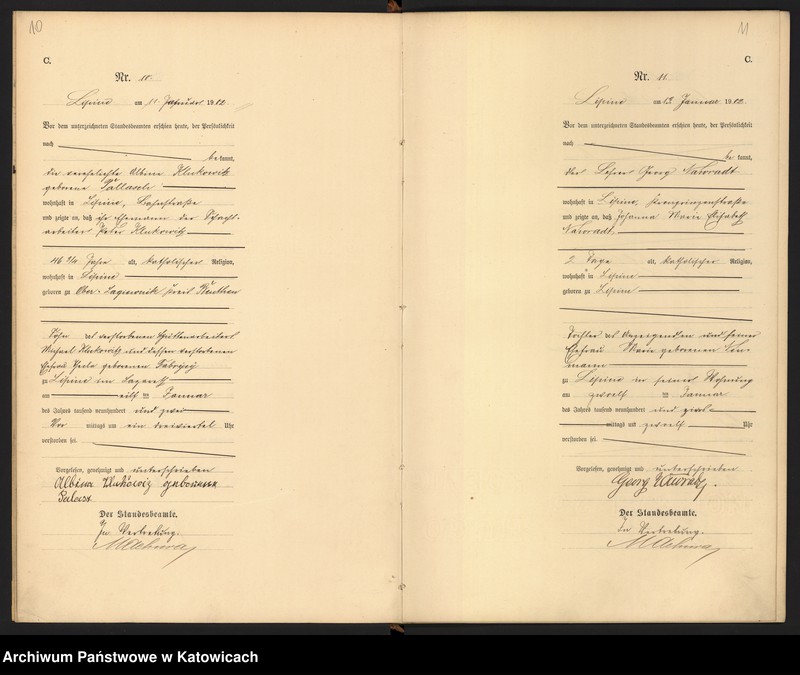 10
C.
Nr. 10
Lipine am 11 Januar 1902
Vor dem unterzeichneten Standesbeamten erschien heute, der Persönlichkeit
nach
bekannt,
die verehelichte Albine Klukowitz
geborene Pallasch
wohnhaft in Lipine, Bahnstraße
und zeigte an, daß ihr Ehemann der
arbeiter Peter Klukowitz
46 3/4 Jahre alt, katholischer Religion,
wohnhaft in Lipine
geboren zu Ober-Lagiewnik Kreis Beuthen
Sohn des verstorbenen Hüttenarbeiters
Michael Klukowitz und dessen verstorbenen
Ehefrau Thecla geborenen
zu Lipine im Lazareth
am elften Januar
des Jahres tausend neunhundert und zwei
Vor mittags um ein dreiviertel Uhr
verstorben sei.
Vorgelesen, genehmigt und unterschrieben
Albina Klukowiz geborene
Palasz
Der Standesbeamte.
In Vertretung.
11
C.
Nr. 11
Lipine am 13 Januar 1902
Vor dem unterzeichneten Standesbeamten erschien heute, der Persönlichkeit
nach
bekannt,
der Lehrer Georg Nawradt
wohnhaft in Lipine, Kronprinzenstraße
und zeigte an, daß Johanna Maria Elisabeth
Nawradt
2 Tage alt, katholischer Religion,
wohnhaft in Lipine
geboren zu Lipine
Tochter des Anzeigenden und seiner
Ehefrau Marie geborenen Neu-
mann
zu Lipine in seiner Wohnung
am zwölften Januar
des Jahres tausend neunhundert und zwei
mittags um zwölf Uhr
verstorben sei.
Vorgelesen, genehmigt und unterschrieben
Georg Nawradt.
Der Standesbeamte.
In Vertretung.
Archiwum Państwowe w Katowicach